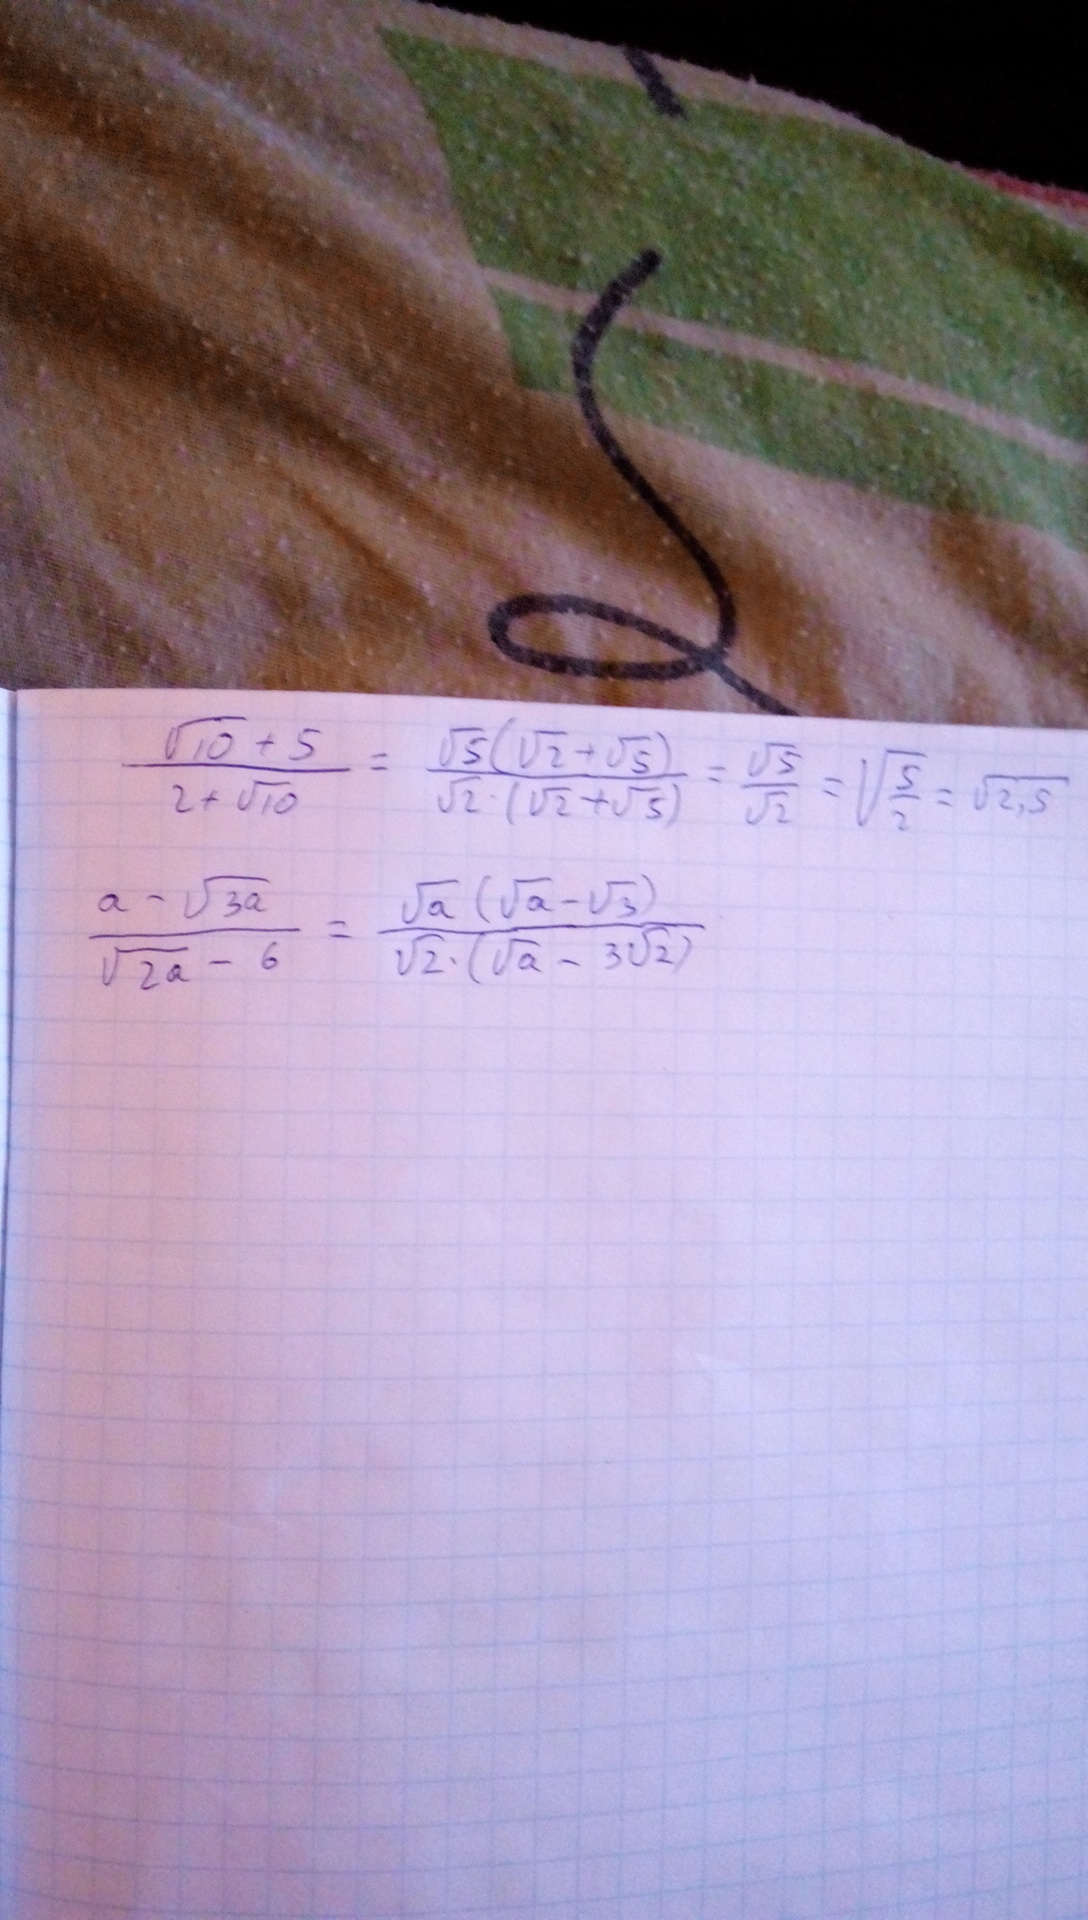 (√10 + 5)/(2 + √10) = (√5(√2 + √5))/(√2·(√2 + √5)) = √5/√2 = √(5/2) = √2,5
(a - √3a)/(√2a - 6) = (√a (√a - √3))/(√2·(√a - 3√2))